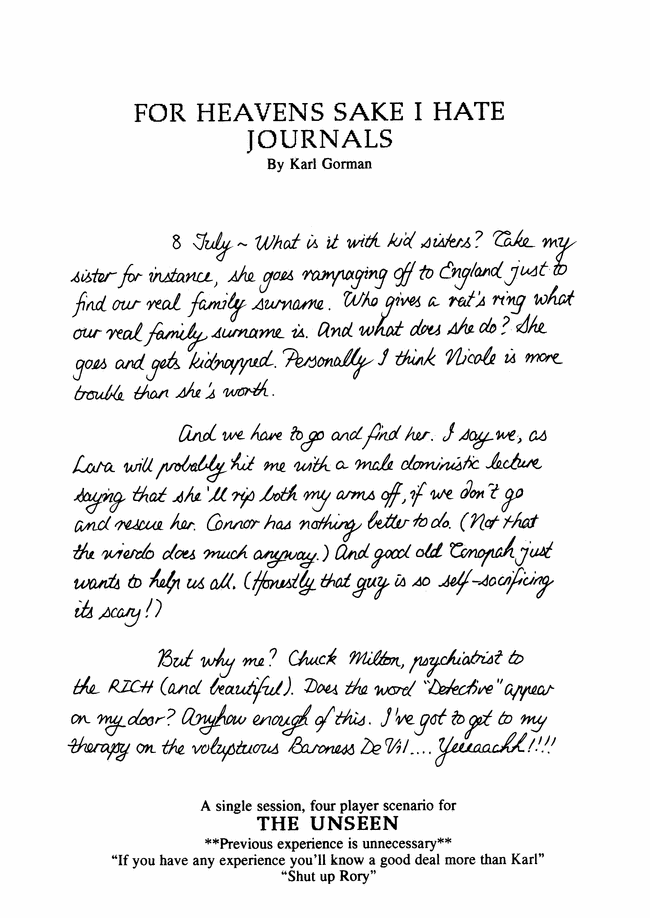 FOR HEAVENS SAKE I HATE
JOURNALS
By Karl Gorman
8 July ~ What is it with kid sisters? Take my
sister for instance, she goes rampaging off to England just to
find our real family surname. Who gives a rat's ring what
our real family surname is. And what does she do? She
goes and gets kidnapped. Personally I think Nicole is more
trouble than she's worth.
And we have to go and find her. I say we, as
Lara will probably hit me with a male doministic lecture
saying that she'll rip both my arms off, if we don't go
and rescue her. Connor has nothing better to do. (Not that
the wierdo does much anyway.) And good old Tonopah just
wants to help us all. (Honestly that guy is so self-sacrificing
its scary!)
But why me? Chuck Milton, psychiatrist to
the RICH (and beautiful). Does the word "Detective" appear
on my door? Anyhow enough of this. I've got to get to my
therapy on the voluptuous Baroness De Vil.... Yeeeaachh!!!!
A single session, four player scenario for
THE UNSEEN
**Previous experience is unnecessary**
"If you have any experience you'll know a good deal more than Karl"
"Shut up Rory"